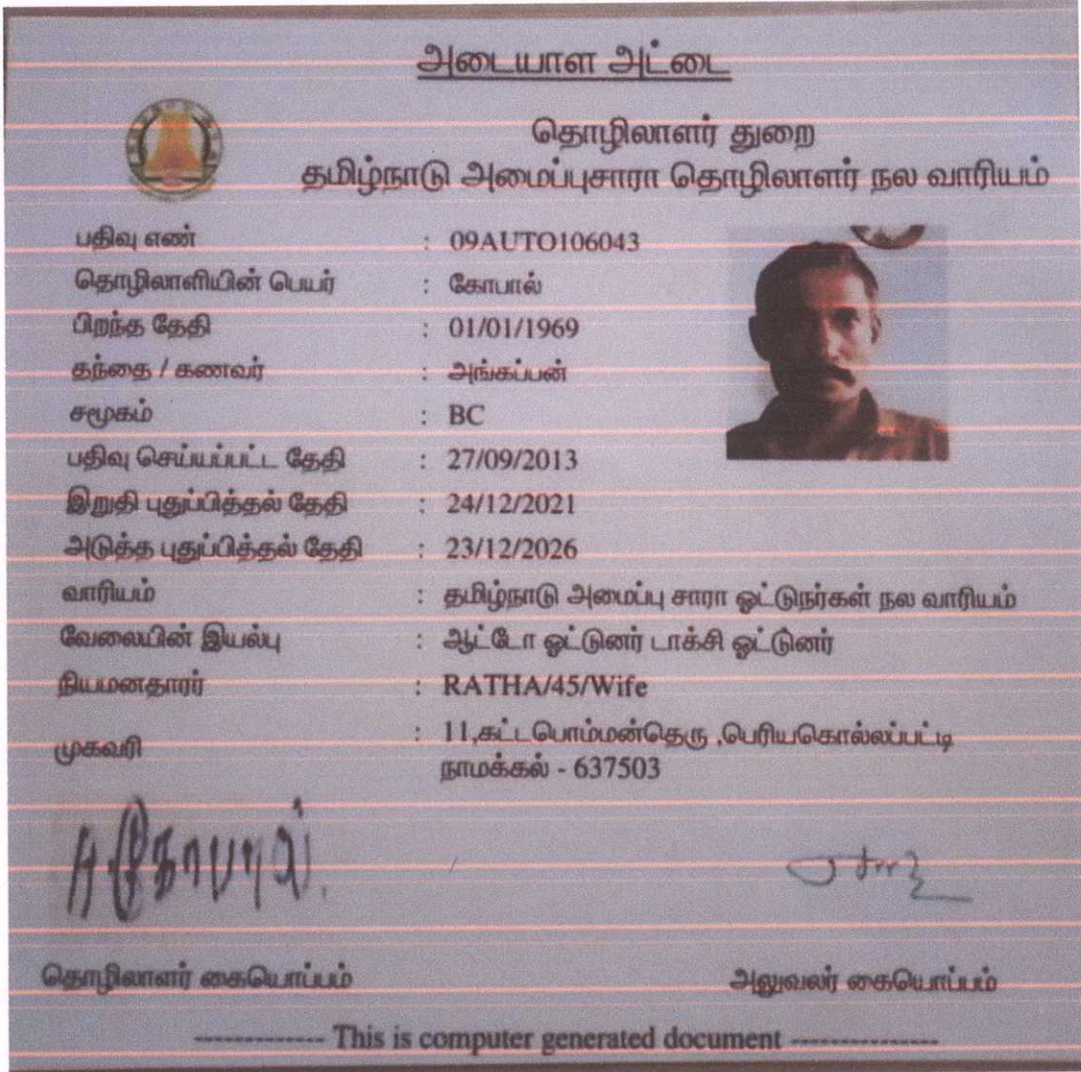 அடையாள அட்டை
தொழிலாளர் துறை
தமிழ்நாடு அமைப்புசாரா தொழிலாளர் நல வாரியம்
பதிவு எண் : 09AUTO106043
தொழிலாளியின் பெயர் : கோபால்
பிறந்த தேதி : 01/01/1969
தந்தை / கணவர் : அங்கப்பன்
சமூகம் : BC
பதிவு செய்யப்பட்ட தேதி : 27/09/2013
இறுதி புதுப்பித்தல் தேதி : 24/12/2021
அடுத்த புதுப்பித்தல் தேதி : 23/12/2026
வாரியம் : தமிழ்நாடு அமைப்பு சாரா ஓட்டுநர்கள் நல வாரியம்
வேலையின் இயல்பு : ஆட்டோ ஓட்டுனர் டாக்சி ஓட்டுனர்
நியமனதாரர் : RATHA/45/Wife
முகவரி : 11,கட்டபொம்மன்தெரு ,பெரியகொல்லப்பட்டி
நாமக்கல் - 637503
A கோபால்.
தொழிலாளர் கையொப்பம் அலுவலர் கையொப்பம்
------------- This is computer generated document ---------------